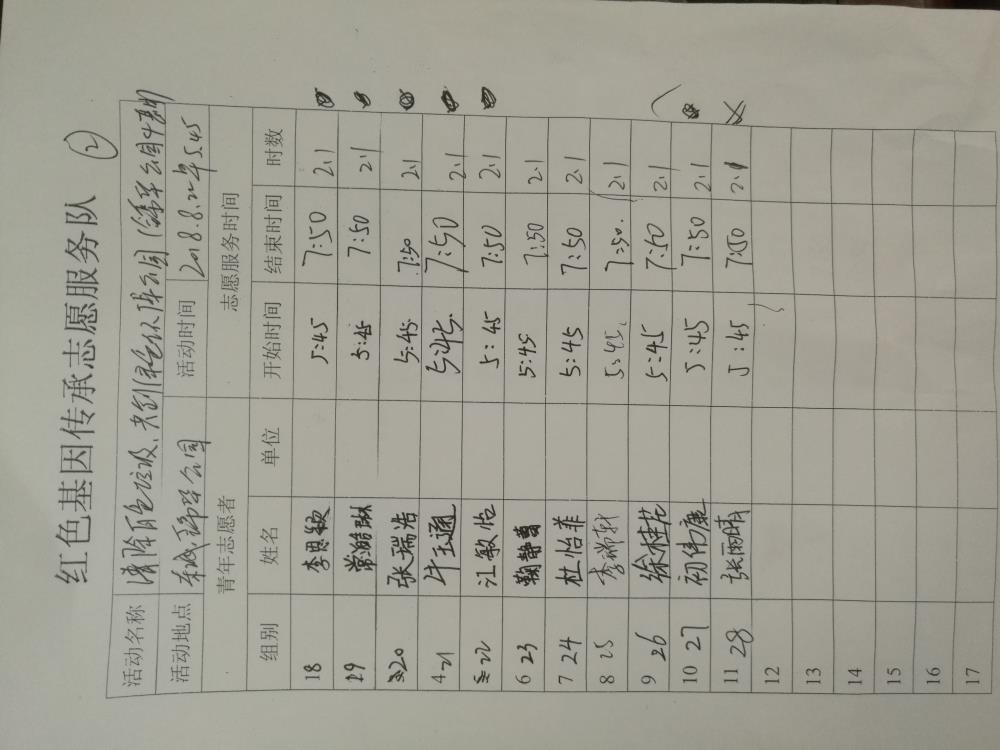 红色基因传承志愿服务队 ②
活动名称 清除白色垃圾
活动地点 东城锦华公园 活动时间 2018.8.22 5:45
青年志愿者 志愿服务时间
组别 姓名 单位 开始时间 结束时间 时数
18 李思颖 5:45 7:50 2.1
19 5:45 7:50 2.1
20 张瑞浩 5:45 7:50 2.1
4 21 牛玉通 5:45 7:50 2.1
22 江敏怡 5:45 7:50 2.1
6 23 鞠静 5:45 7:50 2.1
7 24 杜怡菲 5:45 7:50 2.1
8 25 李瑞轩 5:45 7:50 2.1
9 26 徐桂芸 5:45 7:50 2.1
10 27 初伟廉 5:45 7:50 2.1
11 28 张雨晴 5:45 7:50 2.1
12
13
14
15
16
17